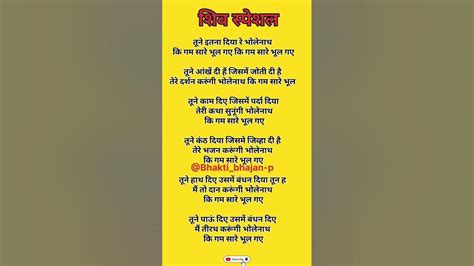 शिव स्पेशल
तूने इतना दिया रे भोलेनाथ
कि गम सारे भूल गए कि गम सारे भूल गए
तूने आंखें दी हैं जिसमें जोती दी है
तेरे दर्शन करुंगी भोलेनाथ कि गम सारे भूल
तूने काम दिए जिसमें पर्दा दिया
तेरी कथा सुनूंगी भोलेनाथ
कि गम सारे भूल गए
तूने कंठ दिया जिसमे जिव्हा दी है
तेरे भजन करूंगी भोलेनाथ
कि गम सारे भूल गए
@Bhakti_bhajan-p
तूने हाथ दिए उसमें बंधन दिया तून ह
मैं तो दान करूंगी भोलेनाथ
कि गम सारे भूल गए
तूने पाऊं दिए उसमें बंधन दिए
मैं तीरथ करूंगी भोलेनाथ
कि गम सारे भूल गए